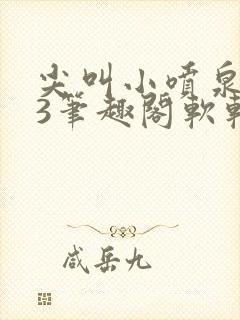 尖叫小喷泉
3笔趣阁软
咸岳九